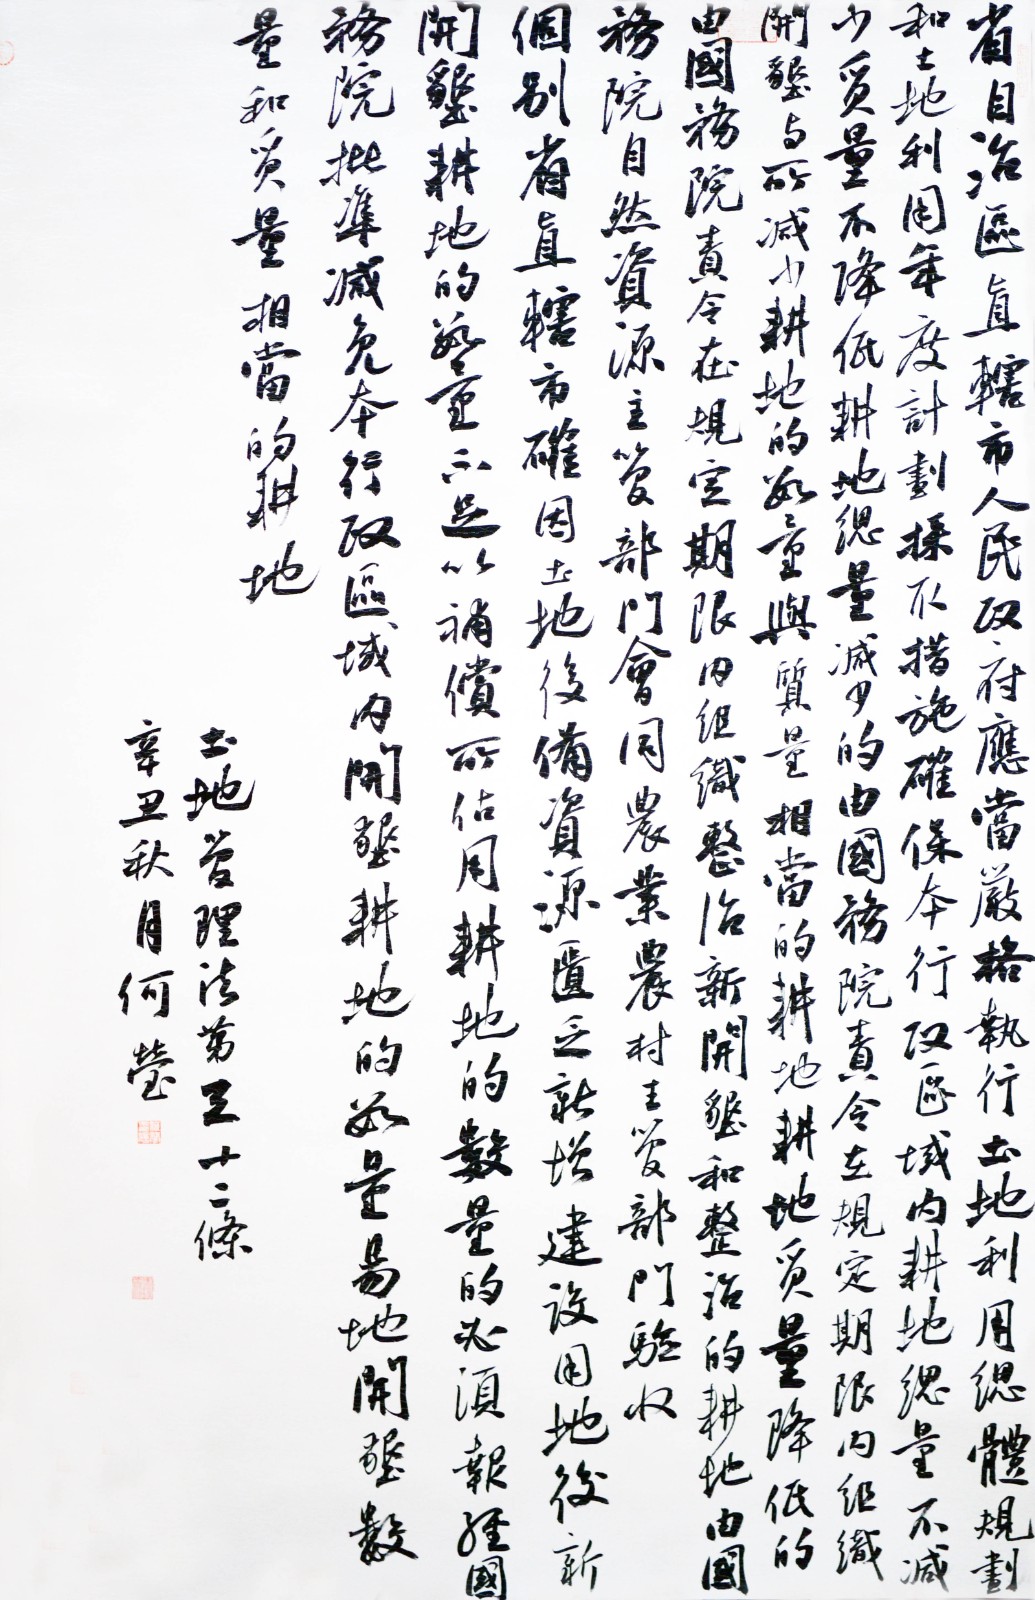 省自治區直轄市人民政府應當嚴格執行土地利用總體規劃
和土地利用年度計劃採取措施確保本行政區域內耕地總量不減
少質量不降低耕地總量減少的由國務院責令在規定期限內組織
開墾與所減少耕地的數量與質量相當的耕地耕地質量降低的
由國務院責令在規定期限內組織整治新開墾和整治的耕地由國
務院自然資源主管部門會同農業農村主管部門驗收
個別省直轄市確因土地後備資源匱乏新增建設用地後新
開墾耕地的數量不足以補償所佔用耕地的數量的必須報經國
務院批準減免本行政區域內開墾耕地的數量易地開墾數
量和質量相當的耕地
土地管理法第三十二條
辛丑秋月何瑩